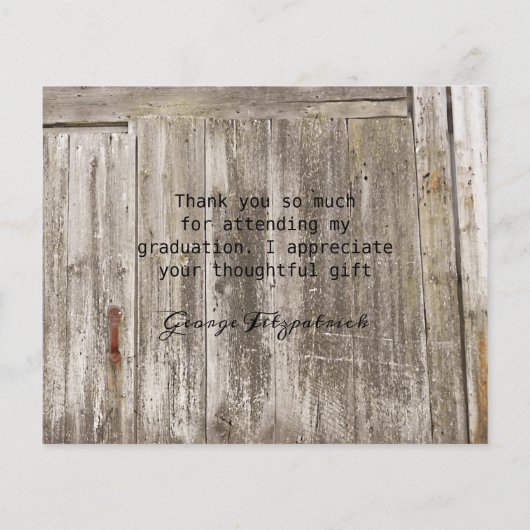 Thank you so much
for attending my
graduation. I appreciate
your thoughtful gift
George Fitzpatrick